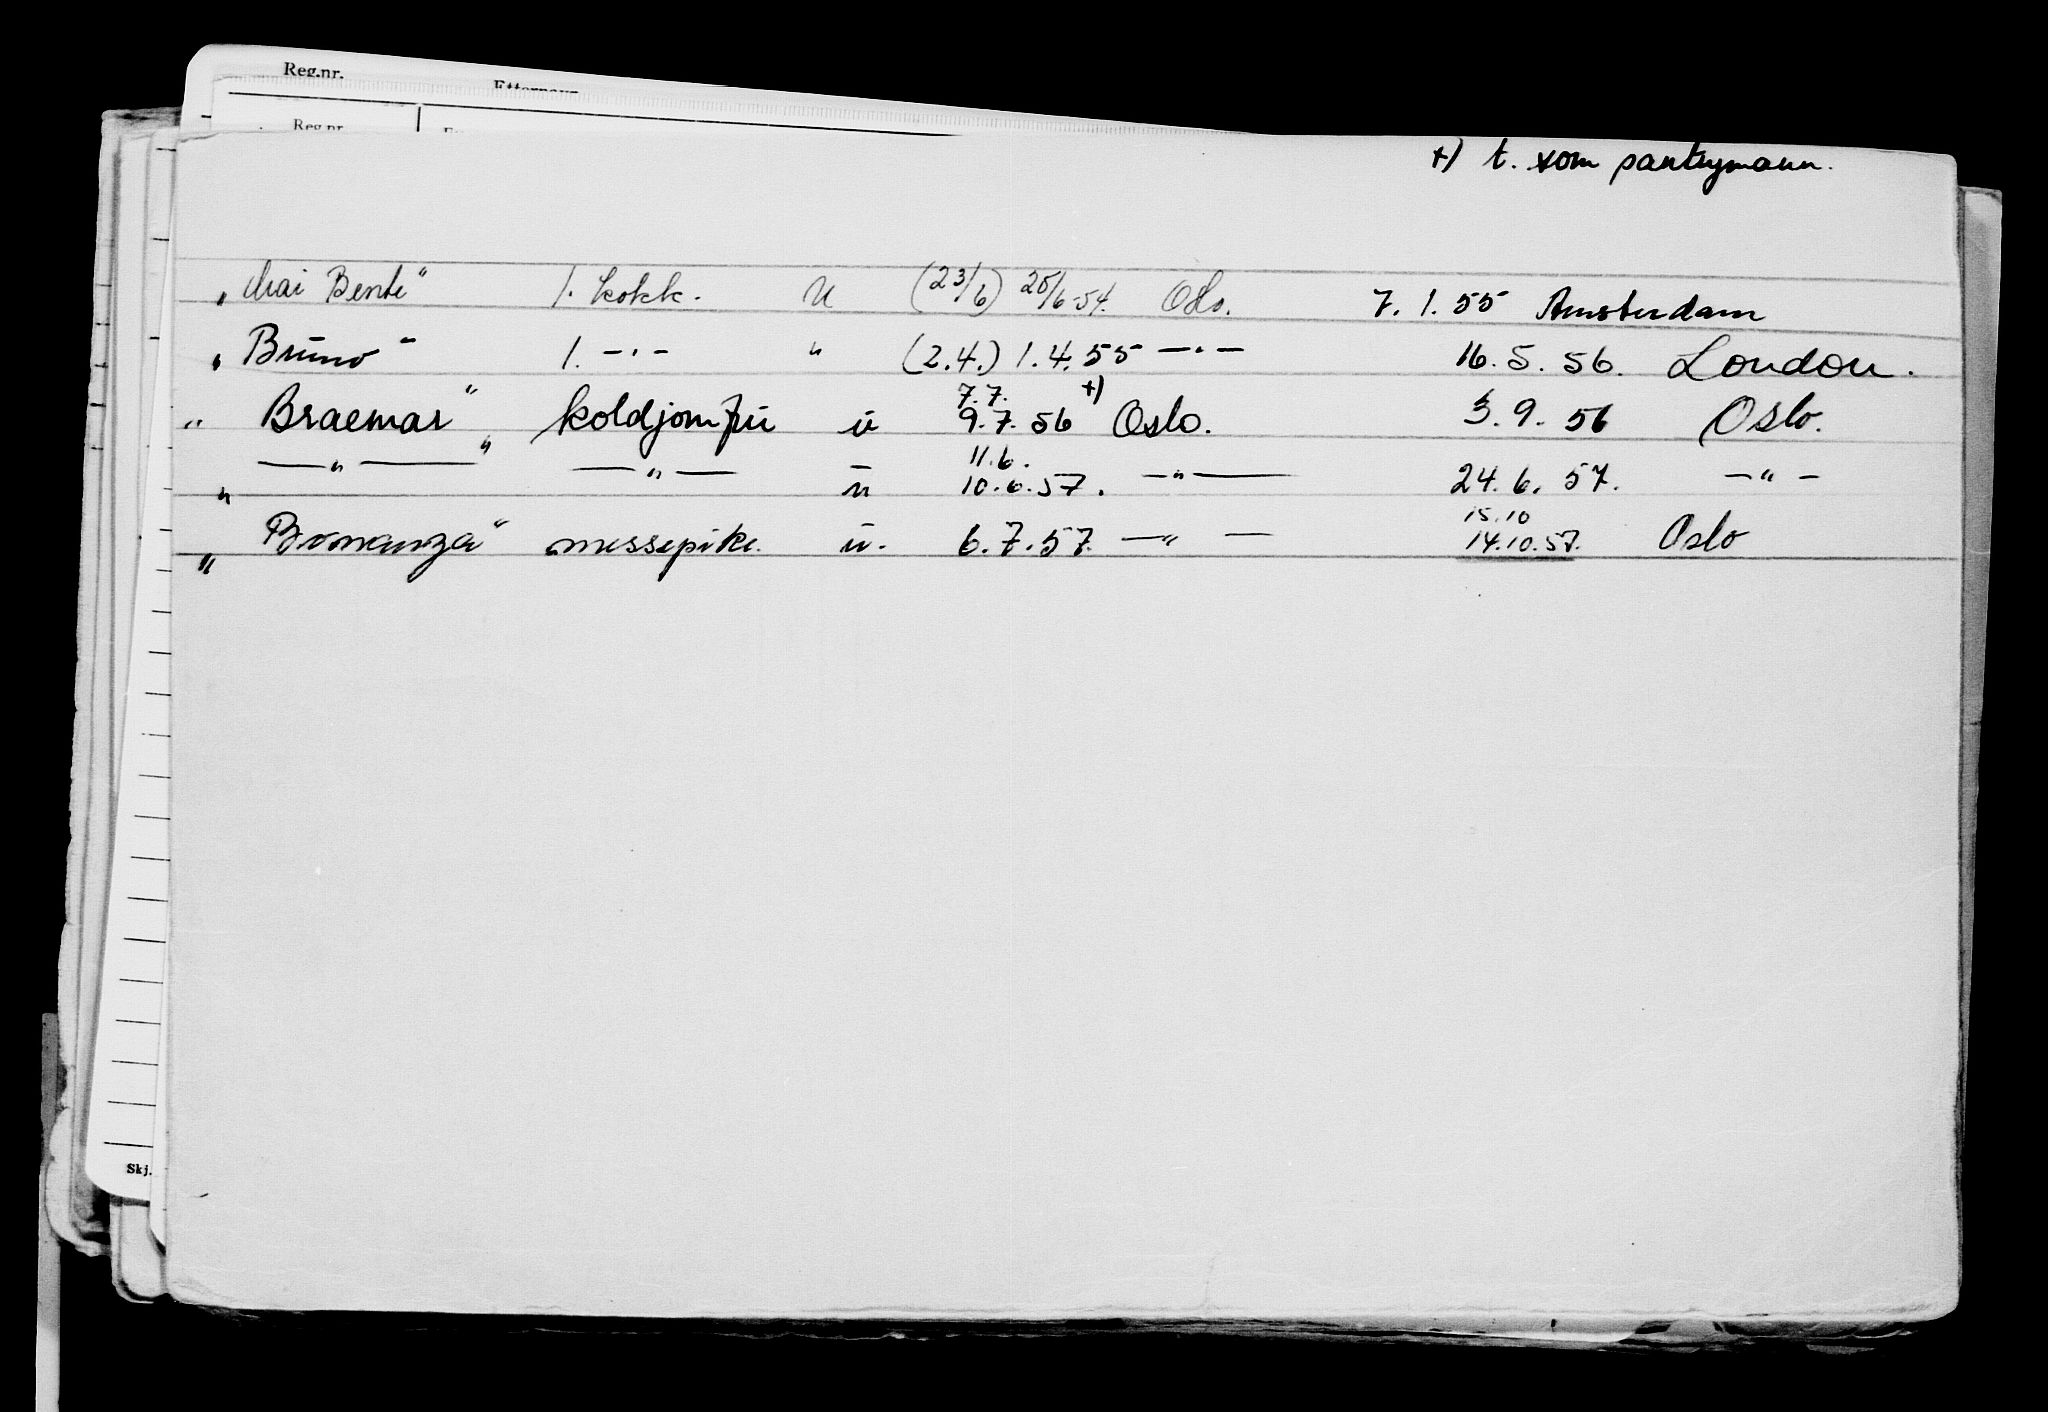 Reg.nr.
Etternavn
Reg.nr.
+) t. som pantrymann.
„Mai Bente“ 1. kokk. u (23/6) 25/6-54. Oslo. 7. 1. 55 Amsterdam
„Bruno“ 1. -"- " (2.4.) 1.4.55 -"- 16. 5. 56. London.
7.7. +)
„Braemar“ koldjomfru u 9.7.56 Oslo. 3. 9. 56 Oslo.
11.6.
„ -"- “ -"- u 10.6.57. -"- 24. 6. 57. -"-
15.10
„Bonanza“ messepike. u. 6.7.57. -"- 14.10.57. Oslo
Skj.